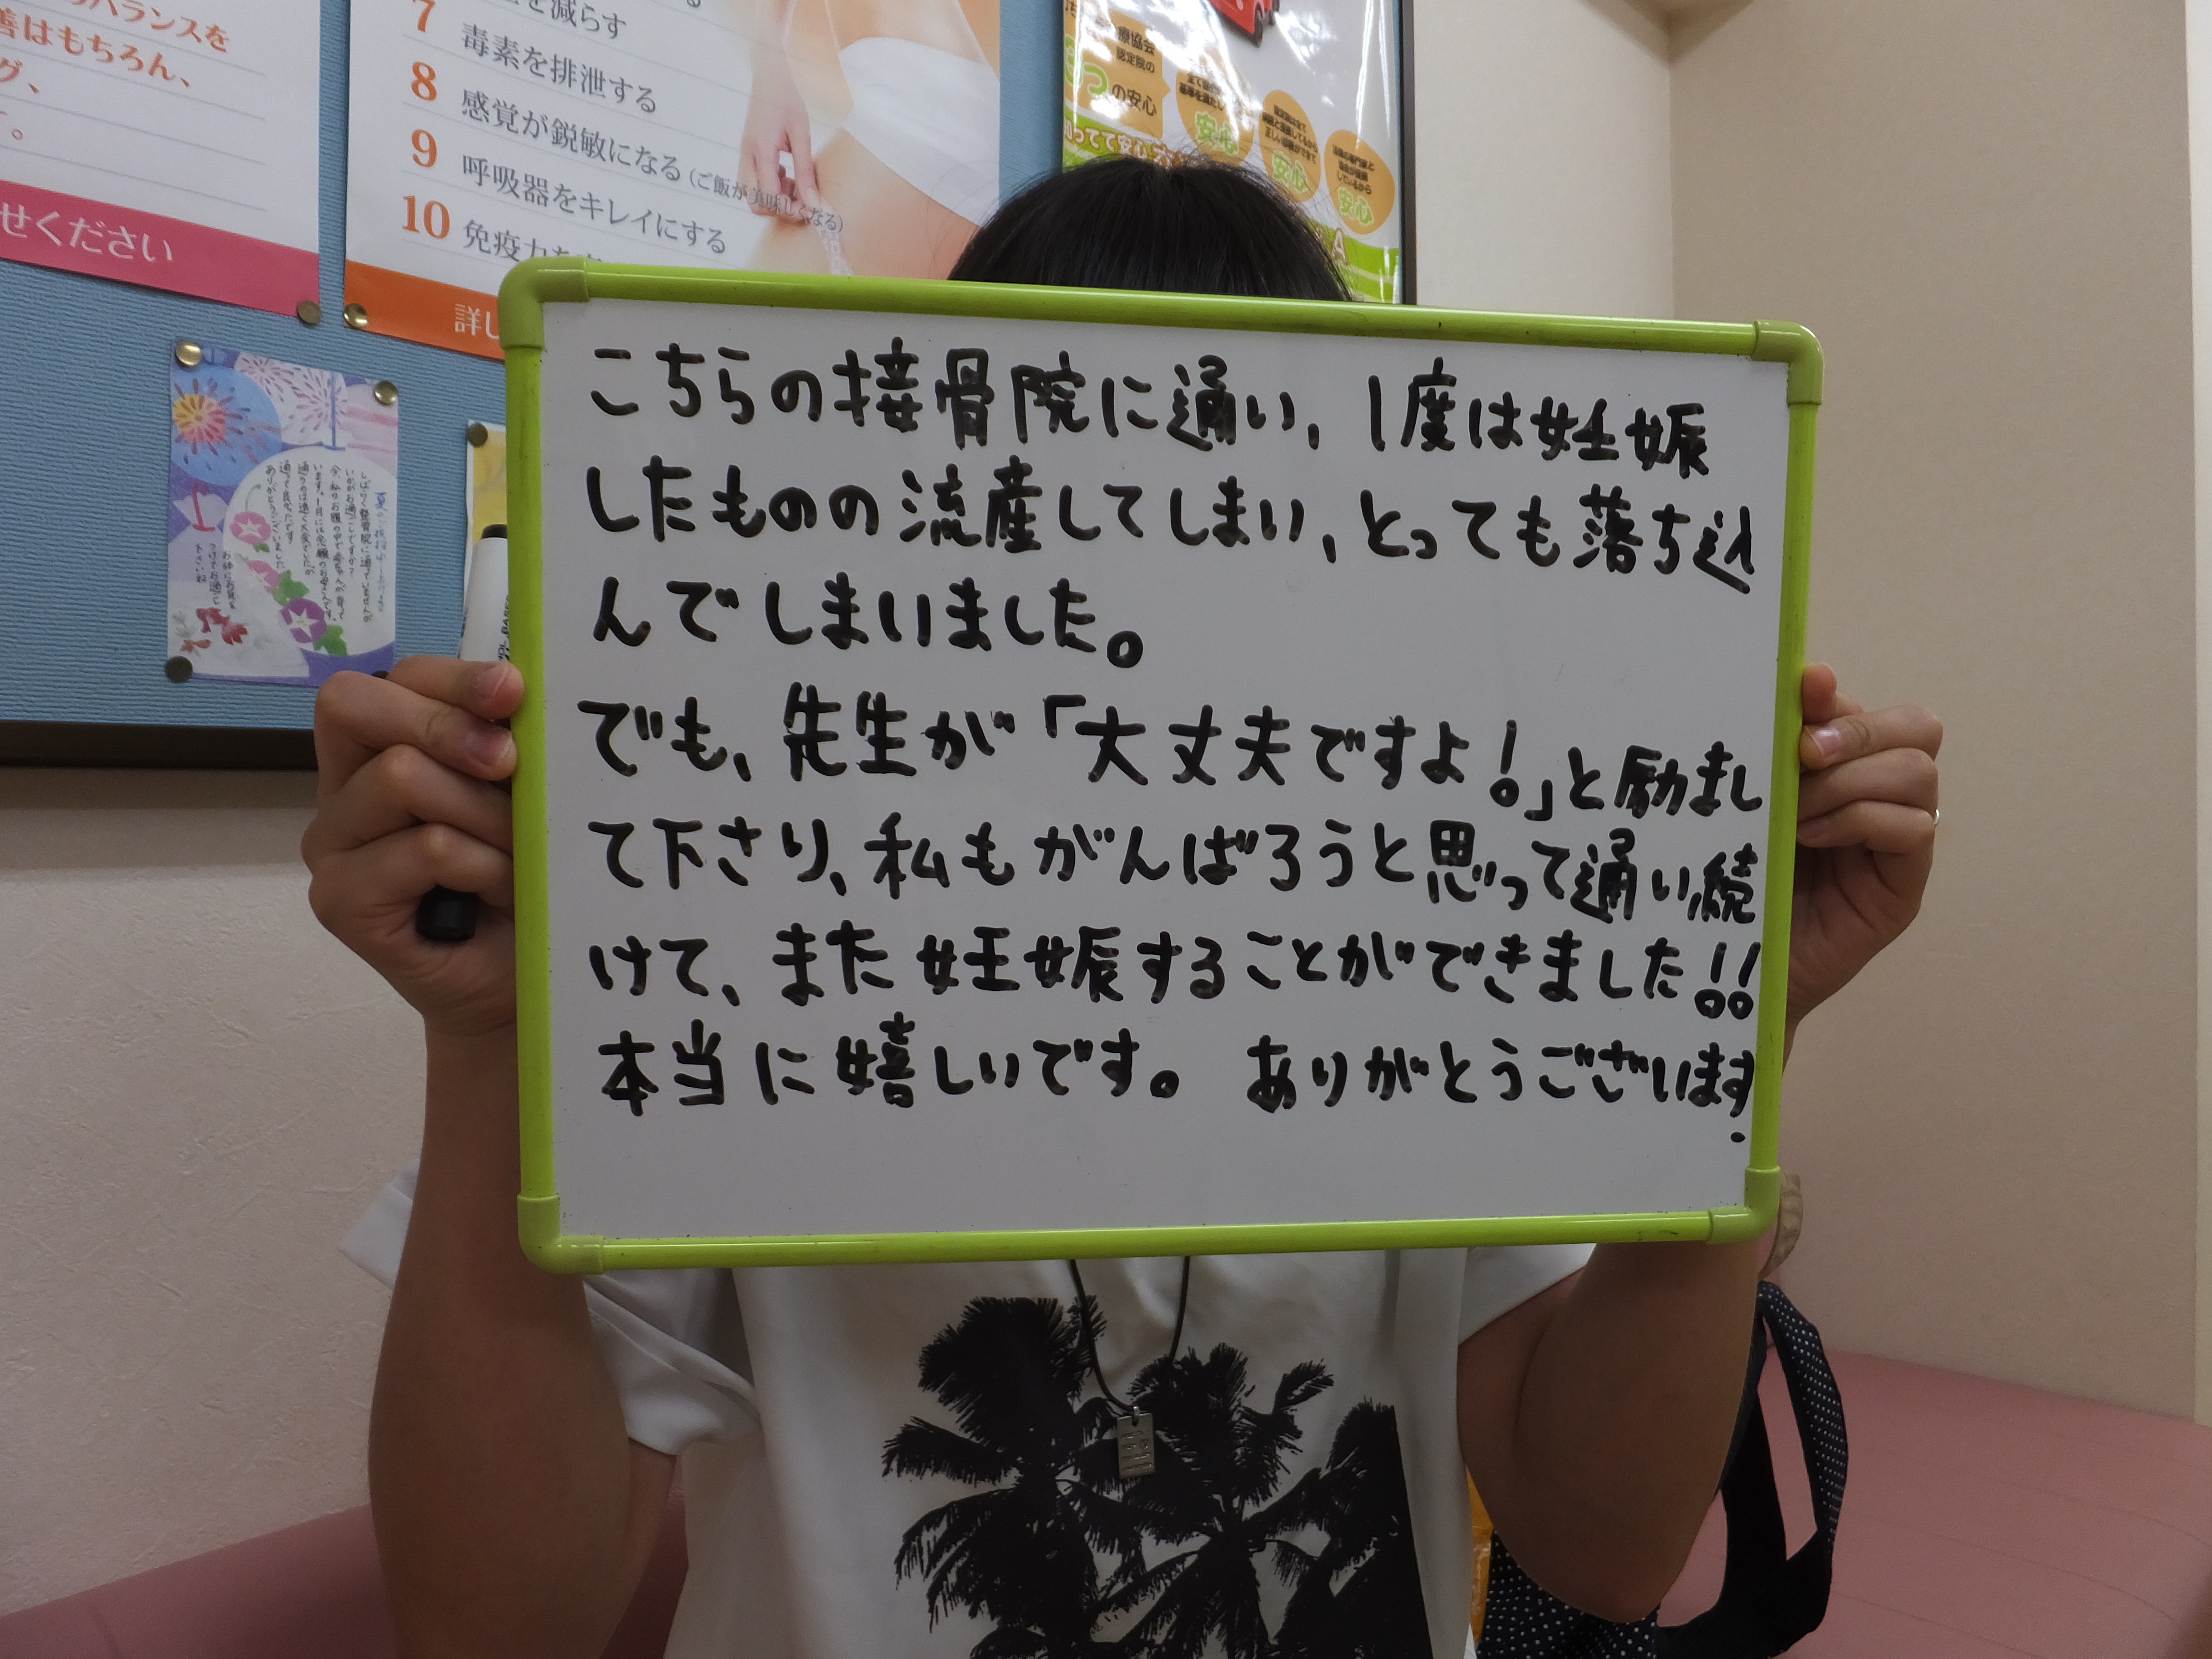 バランスを
善はもちろん、
グ、
す。
せください
を減らす
7 毒素を排泄する
8 感覚が鋭敏になる(ご飯が美味しくなる)
9 呼吸器をキレイにする
10 免疫力を
詳し
療協会
認定院の
3つの安心
知ってて安心
安心
安心
安心
こちらの接骨院に通い、1度は妊娠
したものの流産してしまい、とっても落ち込
んでしまいました。
でも、先生が「大丈夫ですよ!」と励まし
て下さり、私もがんばろうと思って通い続
けて、また妊娠することができました!!
本当に嬉しいです。 ありがとうございます.